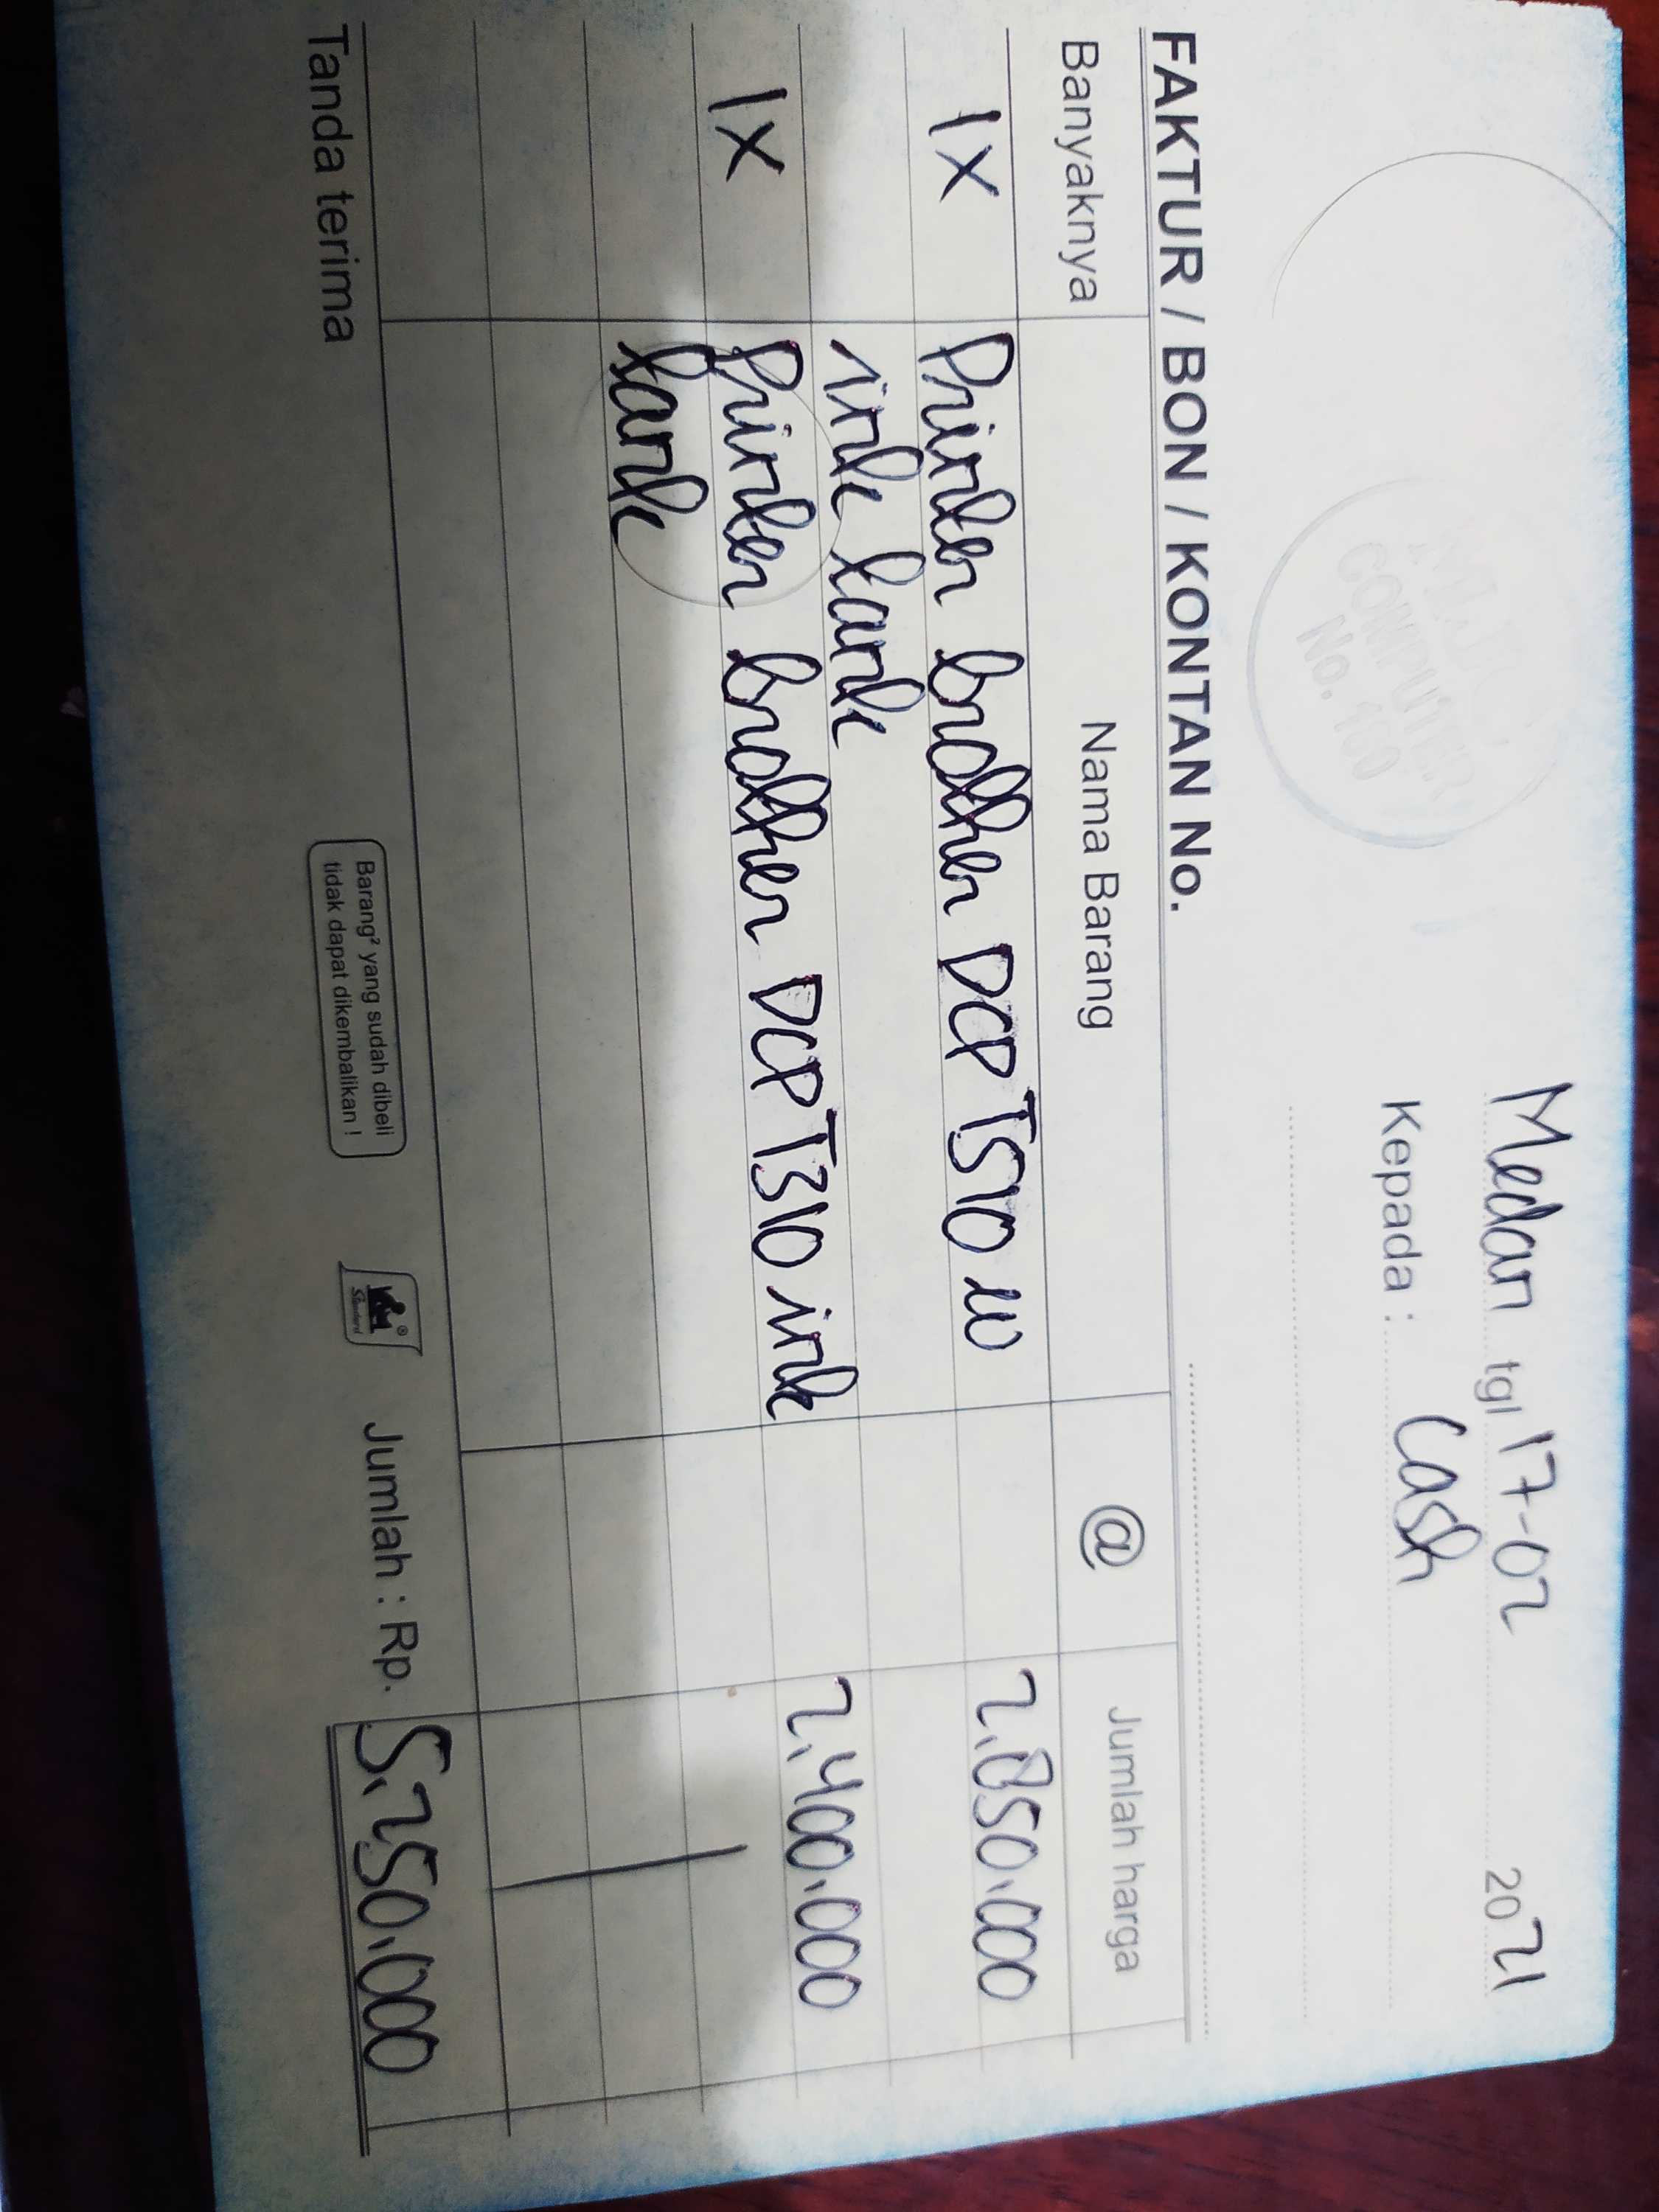 Medan tgl 17-02 2021
Kepada : Cash
COMPUTER
No.
FAKTUR / BON / KONTAN No.
Banyaknya Nama Barang @ Jumlah harga
1x Printer brother DCP T510 w 2.850.000
ink tank
1x Printer brother DCP T310 ink 2.400.000
tank
Tanda terima
Barang² yang sudah dibeli
tidak dapat dikembalikan !
Standard
Jumlah : Rp. 5.250.000